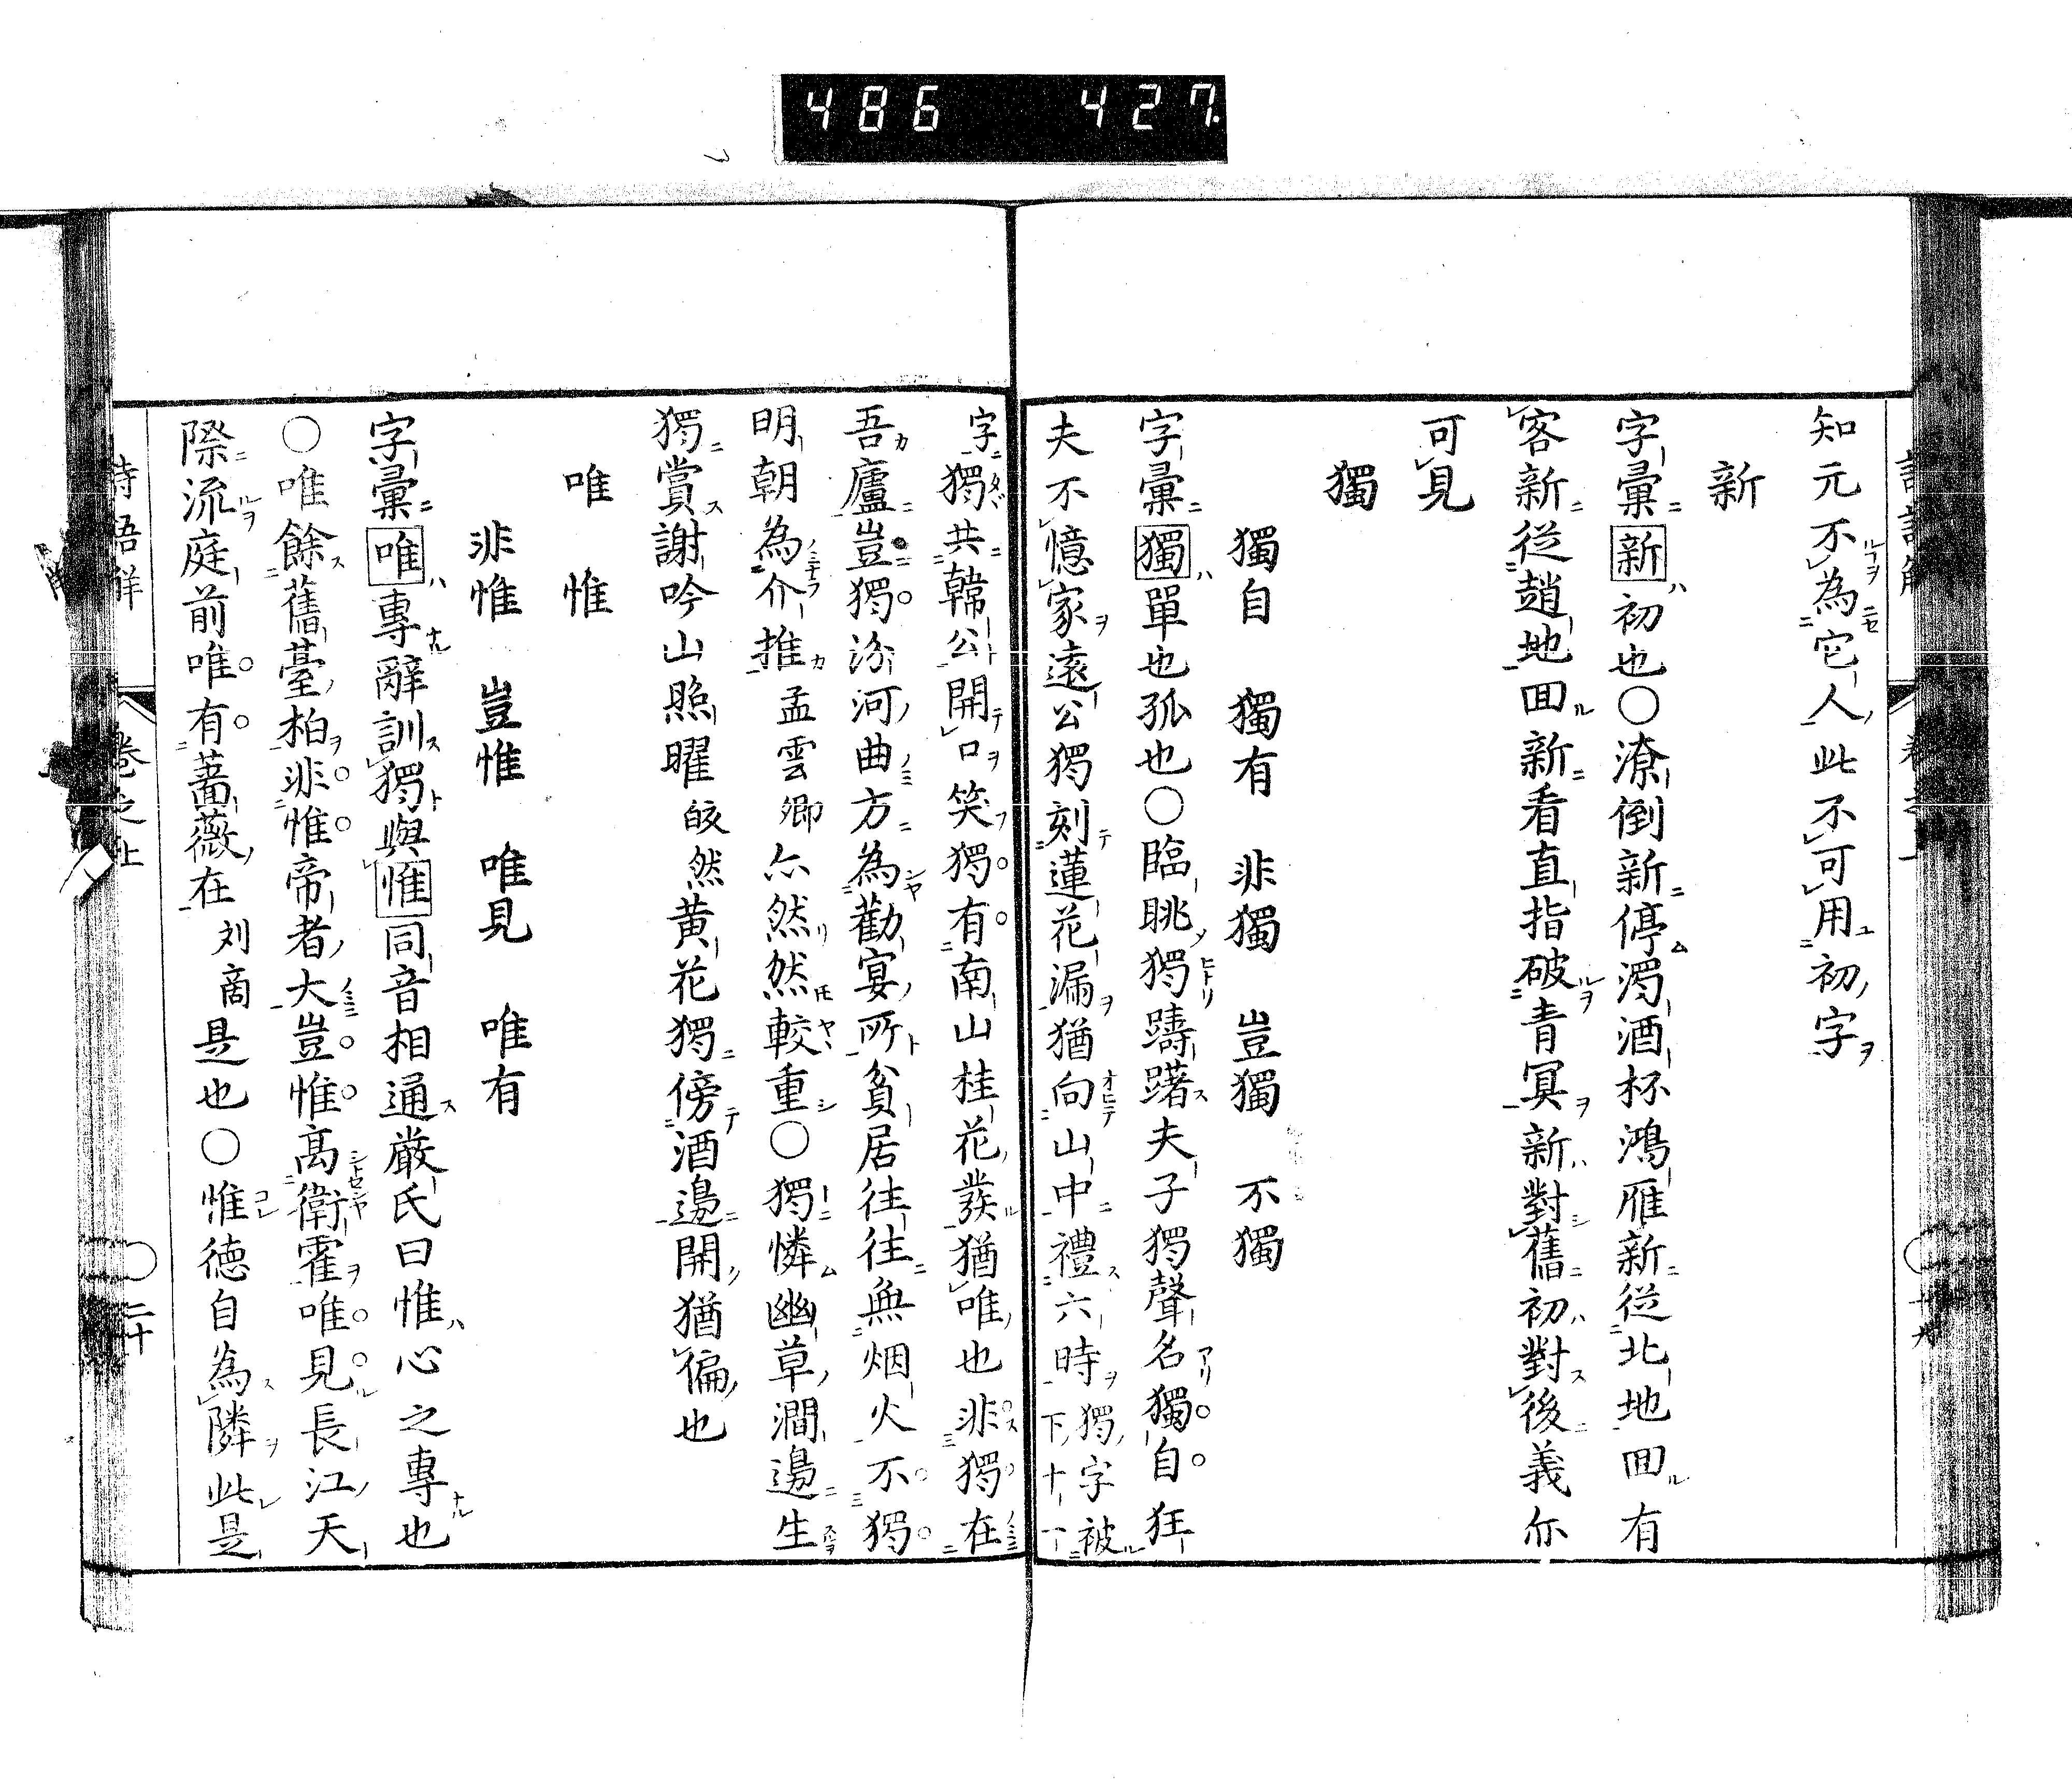 486 427.
知元不為它人此不可用初字
新
字彙新初也〇潦倒新停濁酒杯鴻雁新從北地回有
客新從趙地回新看直指破青冥新對舊初對後義亦
可見
獨
獨自 獨有 非獨 豈獨 不獨
字彙獨單也孤也〇臨眺獨躊躇夫子獨聲名獨自狂
夫不憶家遠公獨刻蓮花漏猶向山中禮六時獨字被下十一
字獨共韓公開口笑獨有南山桂花發猶唯也非獨在
吾廬豈獨汾河曲方為勸宴所貧居往往無烟火不獨
明朝為介推孟雲卿亦然然較重〇獨憐幽草澗邊生
獨賞謝吟山照曜皎然黄花獨傍酒邊開猶偏也
唯 惟
非惟 豈惟 唯見 唯有
字彙唯專辭訓獨與惟同音相通嚴氏曰惟心之專也
〇唯餘舊臺柏非惟帝者大豈惟高衛霍唯見長江天
際流庭前唯有薔薇在刘商是也〇惟德自為隣此是
詩語解 卷之上 二十